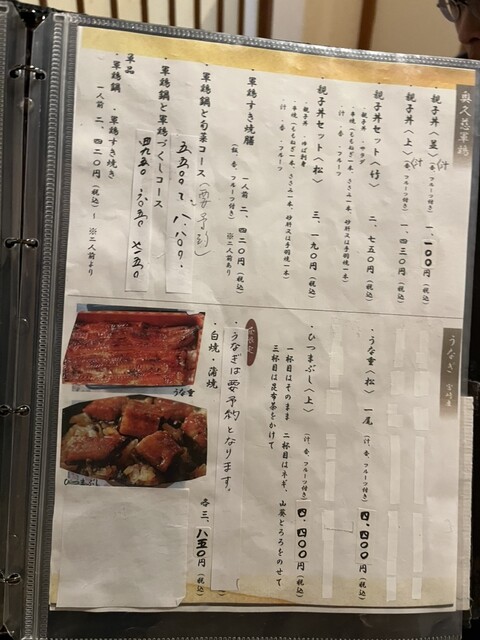 奥久慈軍鶏
親子丼〈並〉（汁、香、フルーツ付き） 一、一〇〇円（税込）
親子丼〈上〉（香、フルーツ付き） 一、四三〇円（税込）
親子丼セット〈竹〉 二、七五〇円（税込）
・親子丼・サラダ
・串焼（ももねぎ一本、ささみ一本、砂肝又は手羽焼一本）
・汁・香・フルーツ
親子丼セット〈松〉 三、一九〇円（税込）
・親子丼・ゆば刺身
・串焼（ももねぎ一本、ささみ一本、砂肝又は手羽焼一本）
・汁・香・フルーツ
・軍鶏すき焼膳 一人前 二、四二〇円（税込）
（飯、香、フルーツ付き） ※二人前より
・軍鶏鍋と旬菜コース（要予約）
五、五〇〇 八、八〇〇
・軍鶏鍋と軍鶏づくしコース
四九五〇 六〇五〇 七一五〇
単品
・軍鶏鍋 ・軍鶏すき焼き
一人前 二、四二〇円（税込）〜 ※二人前より
うなぎ 宮崎産
・うな重〈松〉 一尾（汁、香、フルーツ付き） 四、四〇〇円（税込）
・ひつまぶし〈上〉（汁、香、フルーツ付き） 四、四〇〇円（税込）
一杯目はそのまま 二杯目はネギ、山葵とろろをのせて
三杯目は昆布茶をかけて
・うなぎは要予約となります。
・白焼・蒲焼 各三、八五〇円（税込）
うな重